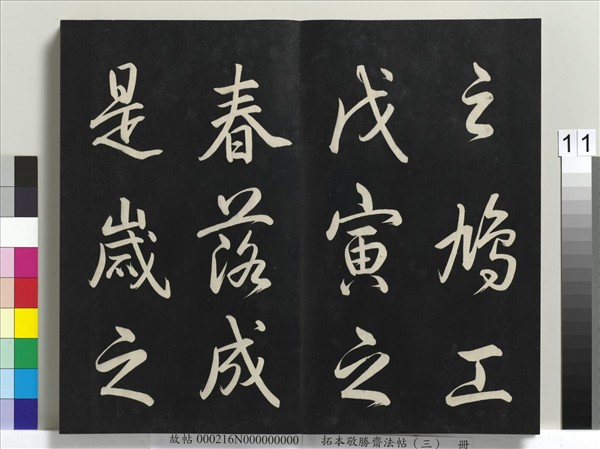 之鳩工
戊寅之
春落成
是歲之
11
故帖 000216N000000000 拓本敬勝齋法帖(三) 冊